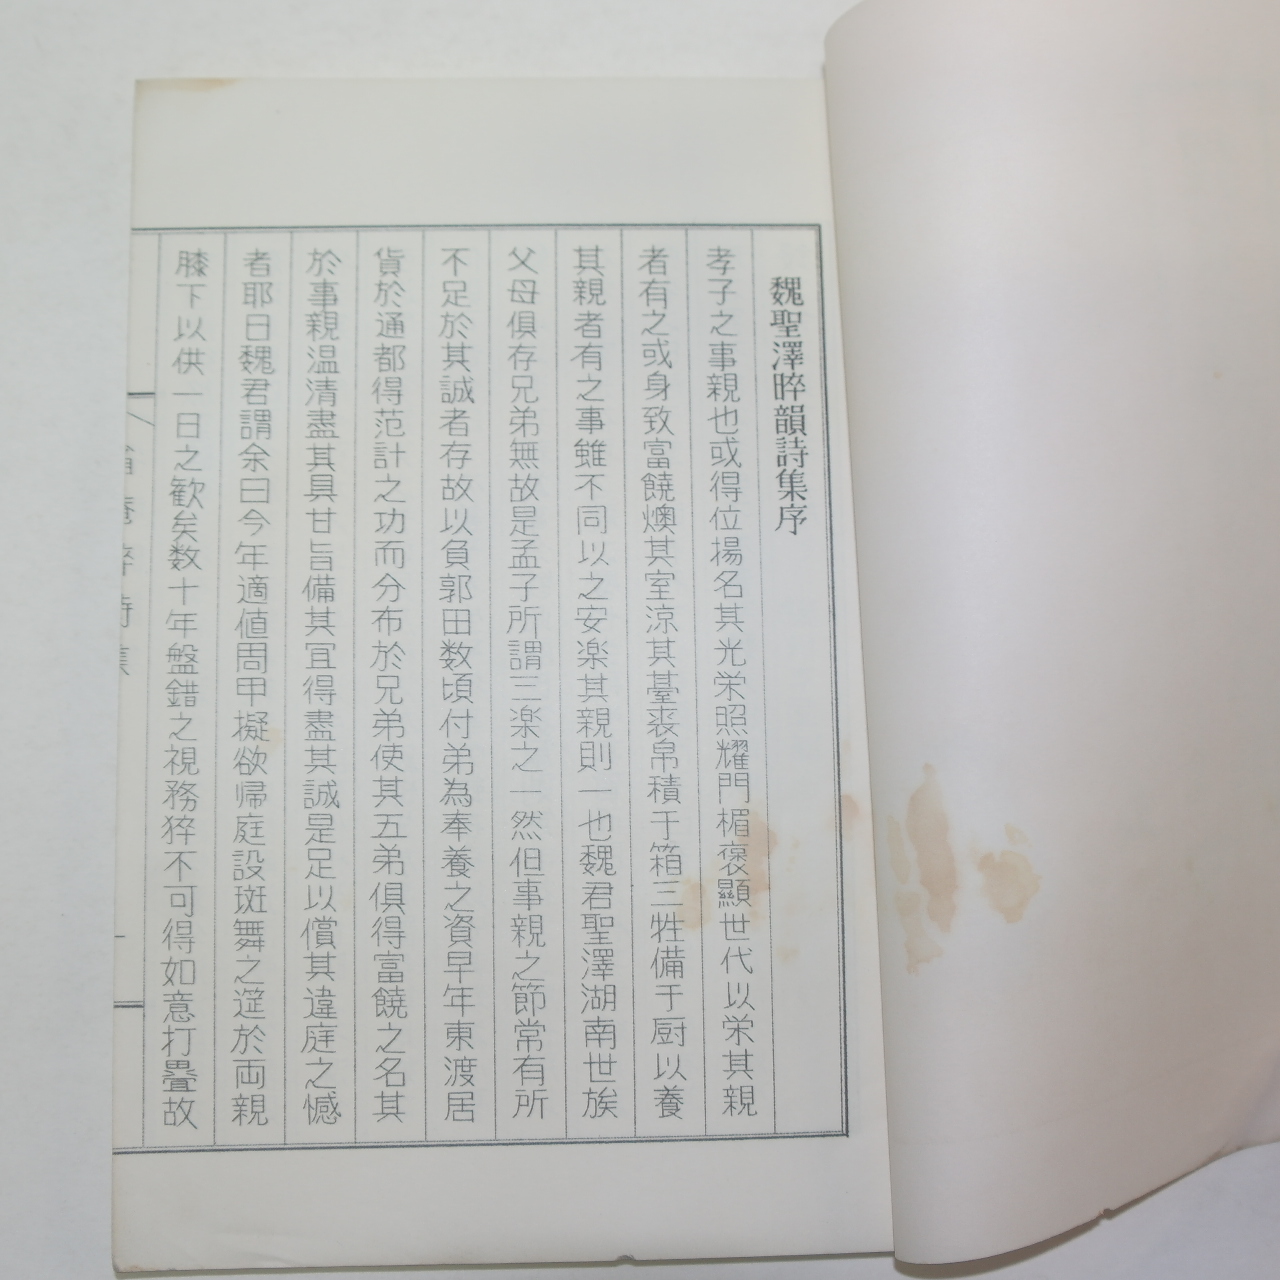 魏聖澤晬韻詩集序
孝子之事親也或得位揚名其光栄照耀門楣褒顯世代以栄其親
者有之或身致富饒燠其室涼其臺裘帛積于箱三牲備于厨以養
其親者有之事雖不同以之安楽其親則一也魏君聖澤湖南世族
父母俱存兄弟無故是孟子所謂三楽之一然但事親之節常有所
不足於其誠者存故以負郭田数頃付弟為奉養之資早年東渡居
貨於通都得范計之功而分布於兄弟使其五弟俱得富饒之名其
於事親温清盡其具甘旨備其冝得盡其誠是足以償其違庭之憾
者耶日魏君謂余曰今年適値周甲擬欲帰庭設斑舞之筵於両親
膝下以供一日之歓矣数十年盤錯之視務猝不可得如意打疊故
晬詩集
一